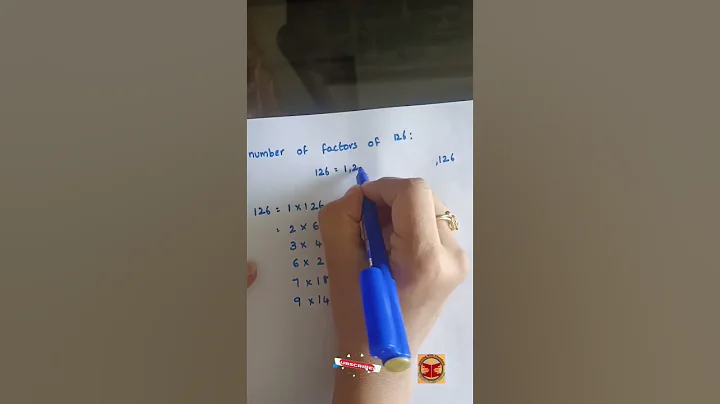 number of factors of 126:
126 = 1,2
,126
126 = 1 x 126
= 2 x 6
3 x 4
6 x 2
7 x 18
9 x 14